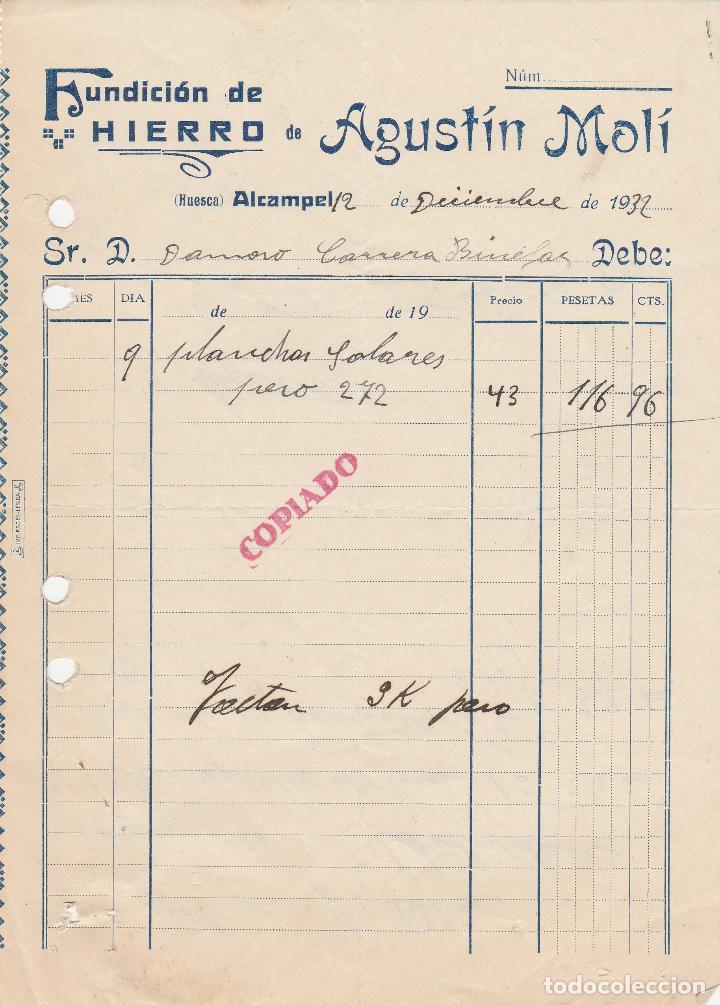 Núm.
Fundición de
HIERRO de Agustín Molí
(Huesca) Alcampel 12 de Diciembre de 1932
Sr. D. Damaso Carrera Binefar Debe:
MES DIA de de 19 Precio PESETAS CTS.
9 planchas Solares
peso 272 43 116 96
COPIADO
Faltan 3K peso
todocoleccion